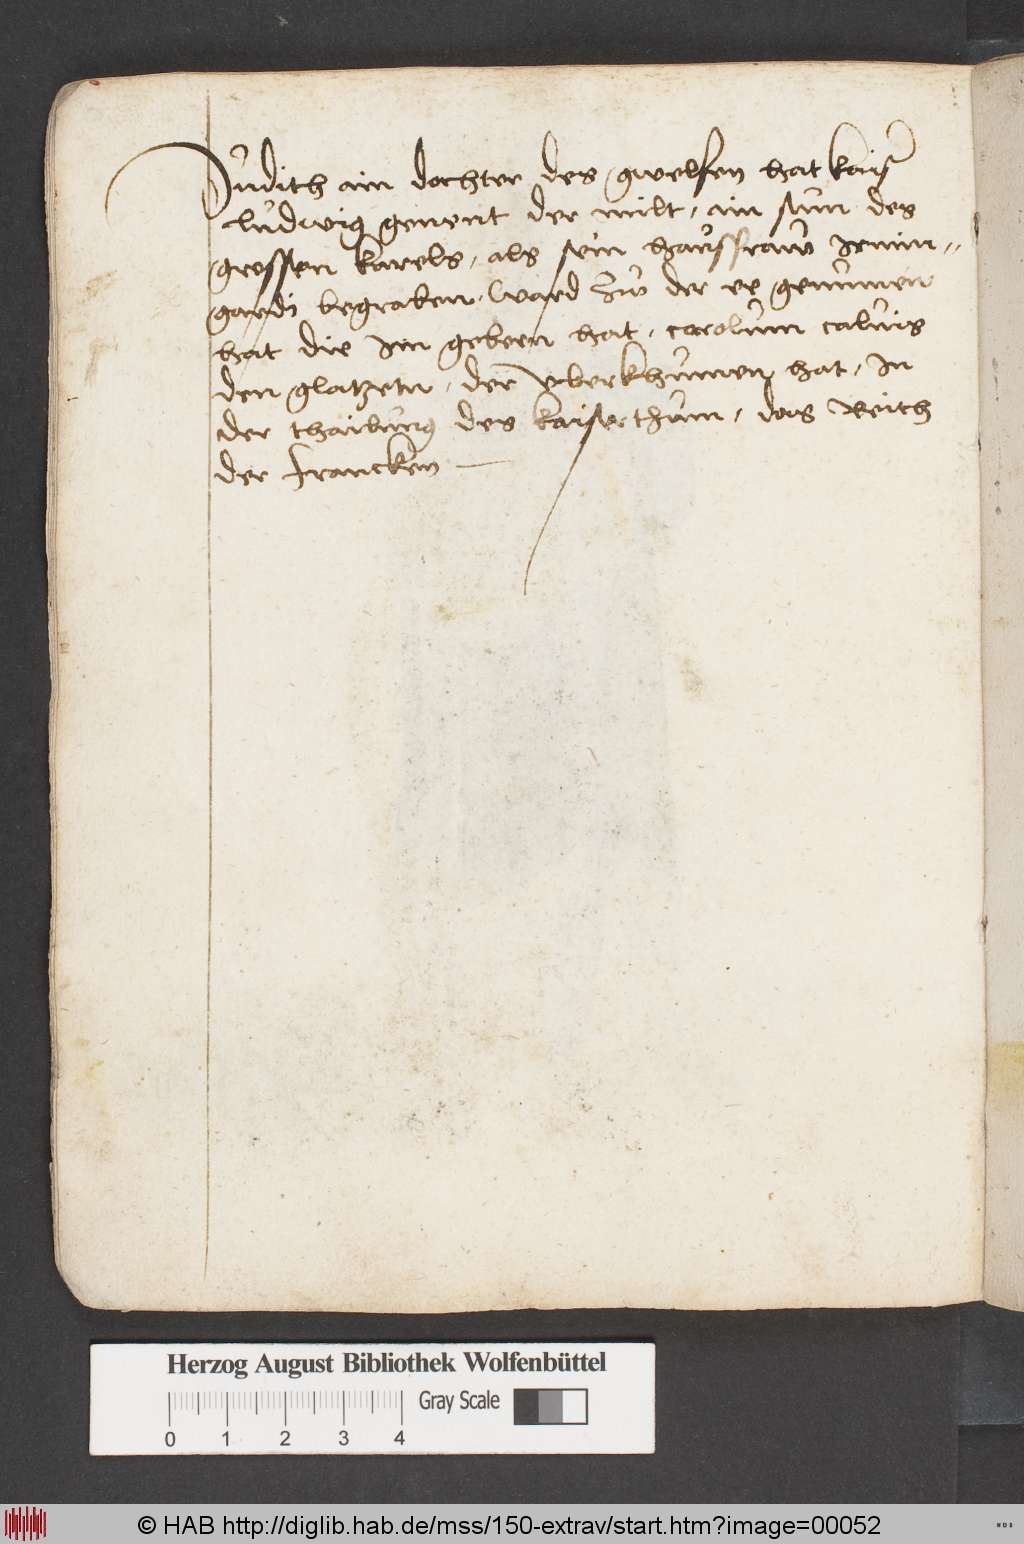 Judith ain dochter des gwelfen hat kaiser
ludwig genent der milt, ain sun des
grossen karels, als sein haussfraw Irmin-
gardi begraben ward zu der ee genumen
hat die Im gebern hat, carolum caluis
den glatzetn, der vberkhumen hat, In
der thailung des kaiserthum, das Reich
der francken
Herzog August Bibliothek Wolfenbüttel
Gray Scale
0 1 2 3 4
© HAB http://diglib.hab.de/mss/150-extrav/start.htm?image=00052